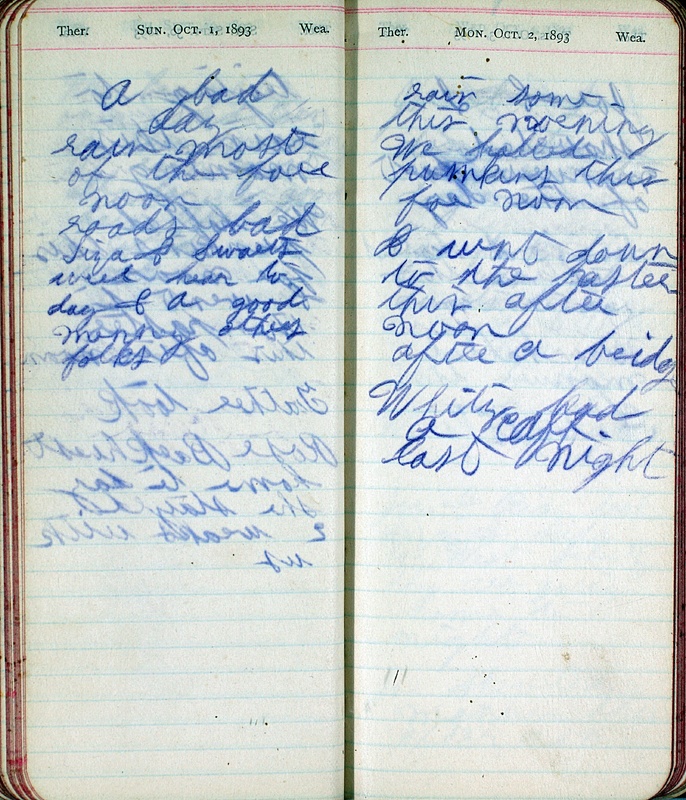 Ther. SUN. OCT. 1, 1893 Wea.
A bad
day
rain most
of the fore
noon
roads bad
& Swarts
were hear to
day & a good
meney other
folks
Ther. MON. OCT. 2, 1893 Wea.
rain some
this morning
We halled
punkins this
for noon
I went down
to the
this after
noon
after a bridg
Whity had
a calf
last night